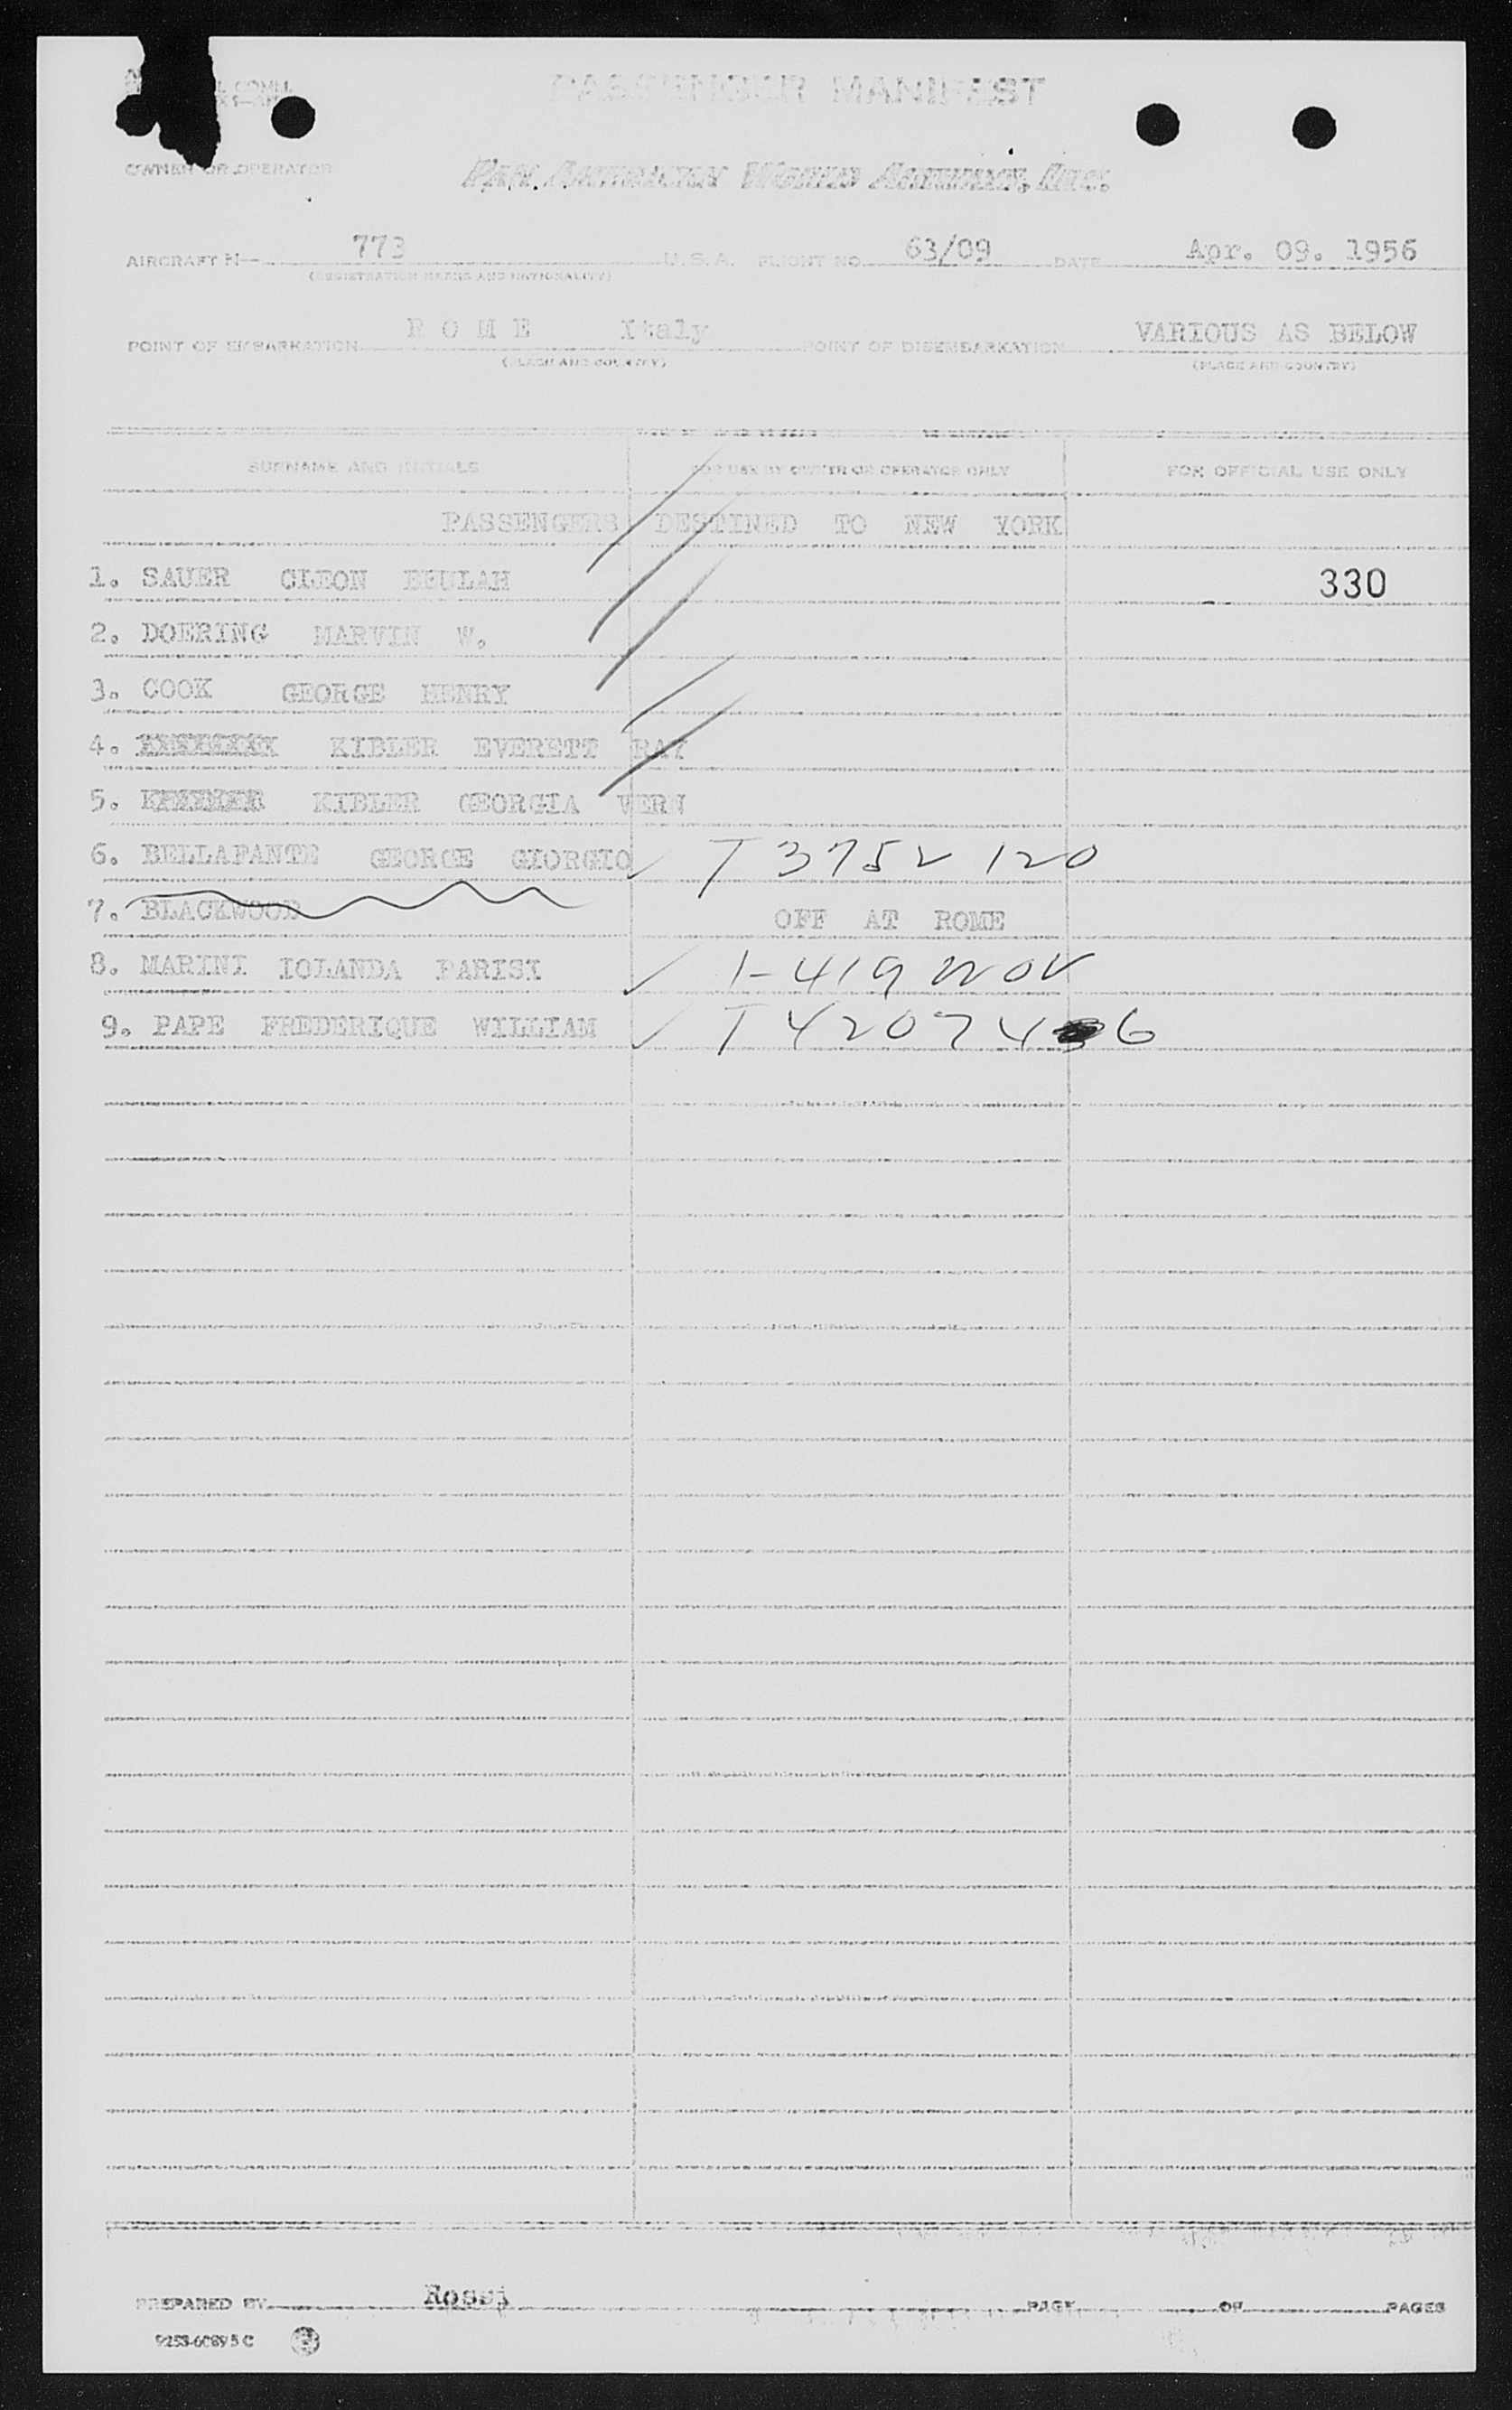 PASSENGER MANIFEST
OWNER OR OPERATOR
PAN AMERICAN WORLD AIRWAYS, INC.
AIRCRAFT N— 773 U.S.A. FLIGHT NO. 63/09 DATE Apr. 09. 1956
(REGISTRATION MARKS AND NATIONALITY)
POINT OF EMBARKATION ROME Italy POINT OF DISEMBARKATION VARIOUS AS BELOW
(PLACE AND COUNTRY) (PLACE AND COUNTRY)
SURNAME AND INITIALS FOR USE BY OWNER OR OPERATOR ONLY FOR OFFICIAL USE ONLY
PASSENGERS DESTINED TO NEW YORK
1. SAUER CLEON BEULAH 330
2. DOERING MARVIN W.
3. COOK GEORGE HENRY
4. KIBLER EVERETT RAY
5. KIBLER GEORGIA VERN
6. BELLAFANTE GEORGE GIORGIO ✓ T 3752 120
7. BLACKWOOD OFF AT ROME
8. MARINI IOLANDA PARISI ✓ 1-419
9. PAPE FREDERIQUE WILLIAM ✓ T 42074 6
PREPARED BY Rossi PAGE OF PAGES